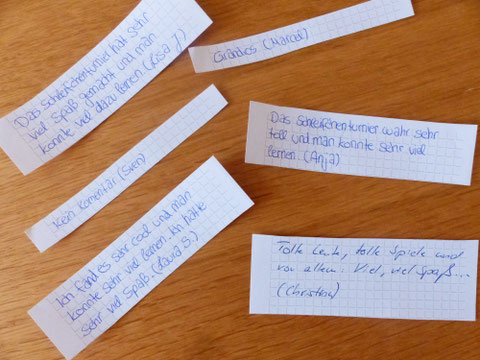 Das Schleifchenturnier hat sehr
viel Spaß gemacht und man
konnte viel dazu lernen. (Lisa J.)
Grandios (Marcel)
Kein Komentar (Sven)
Das Schleifchenturnier wahr sehr
toll und man konnte sehr viel
lernen. (Anja)
Ich fand es sehr cool und man
konnte sehr viel lernen. Ich hatte
sehr viel Spaß. (Laura S.)
Tolle Leute, tolle Spiele und
vor allem: Viel, viel Spaß...
(Christian)